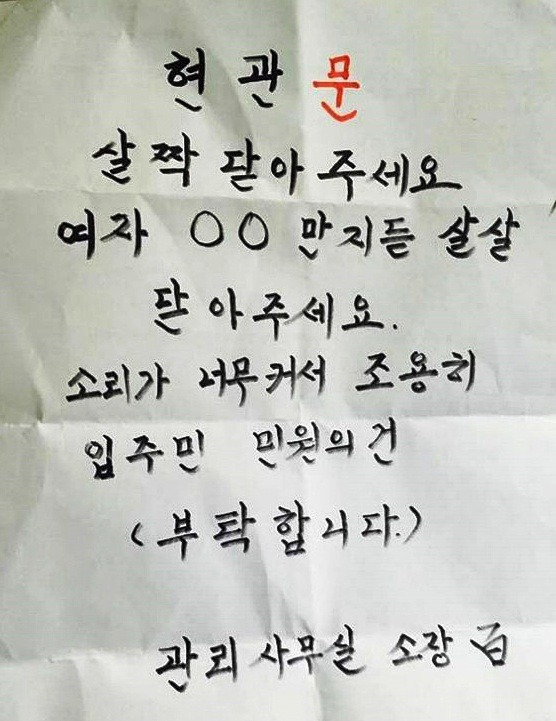 현관문
살짝 닫아 주세요
여자 ○○ 만지듯 살살
닫아주세요.
소리가 너무커서 조용히
입주민 민원의건
(부탁합니다.)
관리사무실 소장 百